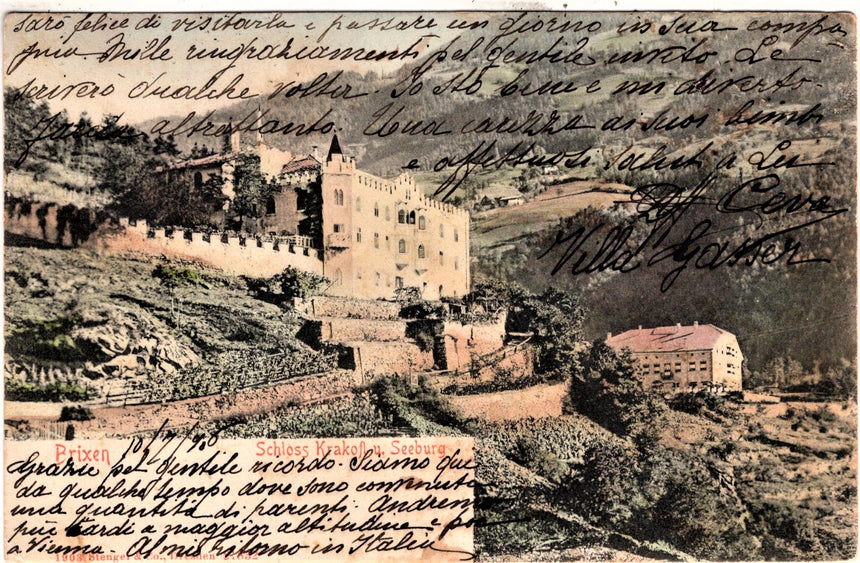 sarò felice di visitarla e passare un giorno in sua compa-
gnia. Mille ringraziamenti pel gentile invito. Le
scriverò qualche volta. Io stò bene e mi diverto.
altrettanto. Una carezza ai suoi bimbi
e affettuosi saluti a Lei
Ceva
Villa Gasser
Brixen
10/7/906
Schloss Krakofl u. Seeburg
Grazie pel gentile ricordo. Siamo qui
da qualche tempo dove sono convenute
una quantità di parenti. Andremo
più tardi a maggior altitudine e poi
a Vienna. Al mio ritorno in Italia
1903 Stengel & Co., Dresden